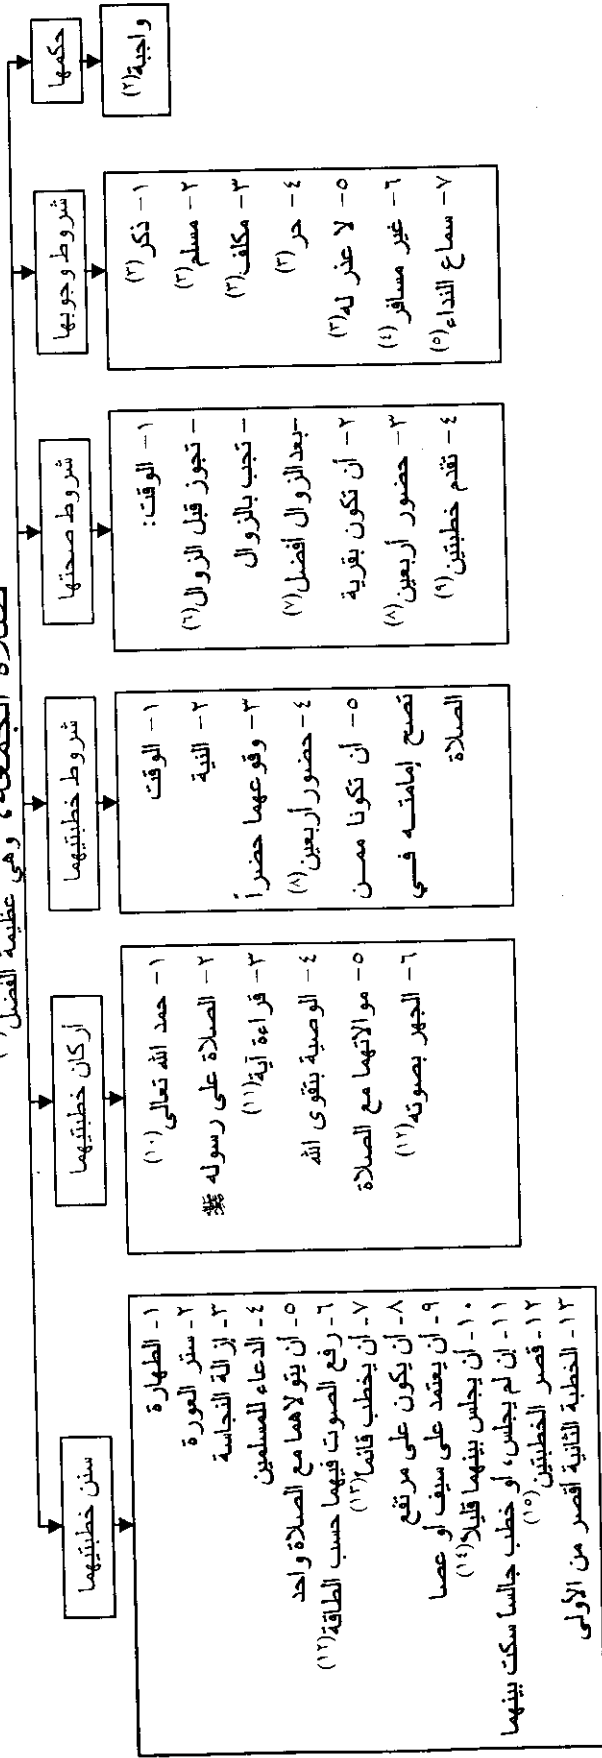 صلاة الجمعة، وهي عظيمة الفضل
حكمها
واجبة(٢)
شروط وجوبها
١- ذكر(٣)
٢- مسلم(٣)
٣- مكلف(٣)
٤- حر(٣)
٥- لا عذر له(٣)
٦- غير مسافر(٤)
٧- سماع النداء(٥)
شروط صحتها
١- الوقت:
- تجوز قبل الزوال(٦)
- تجب بالزوال
-بعد الزوال أفضل(٧)
٢- أن تكون بقرية
٣- حضور أربعين(٨)
٤- تقدم خطبتين(٩)
شروط خطبتيهما
١- الوقت
٢- النية
٣- وقوعهما حضراً
٤- حضور أربعين(٨)
٥- أن تكونا ممـن
تصح إمامتـه فـي
الصلاة
أركان خطبتيهما
١- حمد الله تعالى(١٠)
٢- الصلاة على رسوله ﷺ
٣- قراءة آية(١١)
٤- الوصية بتقوى الله
٥- موالاتهما مع الصلاة
٦- الجهر بصوته(١٢)
سنن خطبتيهما
١- الطهارة
٢- ستر العورة
٣- إزالة النجاسة
٤- الدعاء للمسلمين
٥- أن يتولاهما مع الصلاة واحد
٦- رفع الصوت فيهما حسب الطاقة(١٢)
٧- أن يخطب قائما(١٣)
٨- أن يكون على مرتفع
٩- أن يعتمد على سيف أو عصا
١٠- أن يجلس بينهما قليلا(١٤)
١١- إن لم يجلس، أو خطب جالسا سكت بينهما
١٢- قصر الخطبتين(١٥)
١٣- الخطبة الثانية أقصر من الأولى